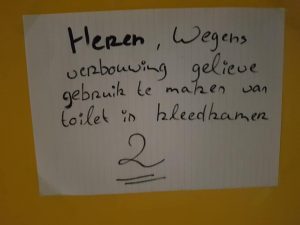 Heren, Wegens
verbouwing gelieve
gebruik te maken van
toilet in kleedkamer
2